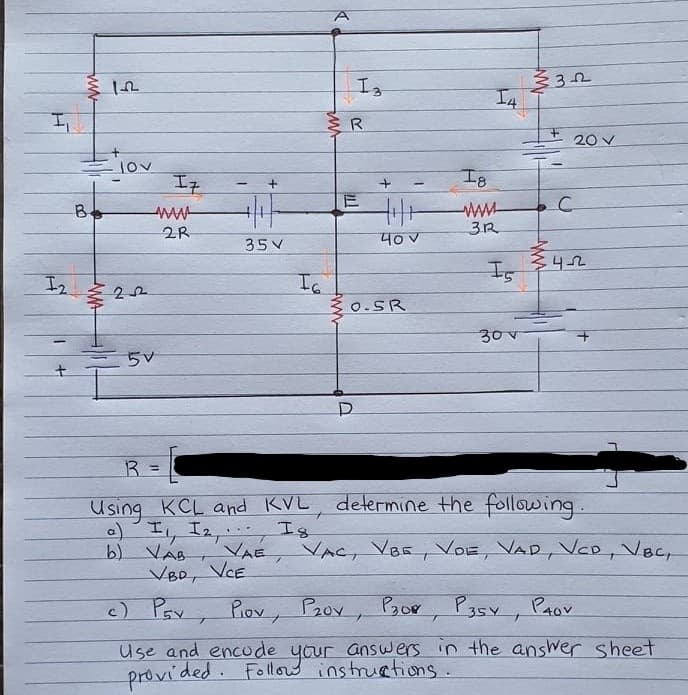 A
1Ω
I3
3Ω
I4
I1
R
+
20 V
+
10V
-
-
I7
- +
+ -
I8
B
E
C
2R
35 V
40 V
3R
I2
2Ω
I6
I5
4Ω
0.5R
-
30 V
-
+
5V
+
D
R = [ ]
Using KCL and KVL, determine the following.
a) I1, I2, ..., I8
b) VAB, VAE, VAC, VBE, VDE, VAD, VCD, VBC,
VBD, VCE
c) P5V, P10V, P20V, P30V, P35V, P40V
Use and encode your answers in the answer sheet
provided. Follow instructions.